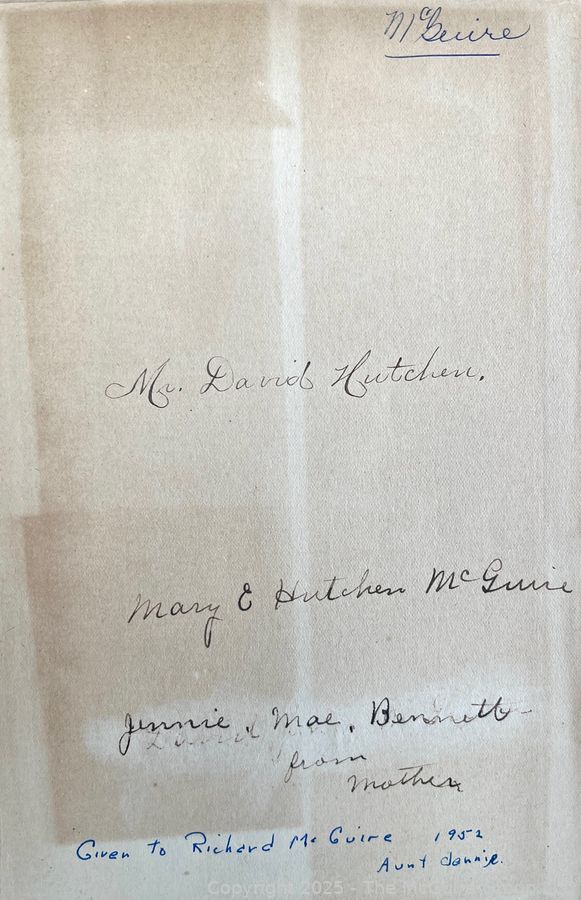 McGuire
Mr. David Hutchen.
Mary E Hutchen McGuire
Jennie, Mae, Bennett
from
mother
Given to Richard McGuire 1952
Aunt Jennie.
Copyright 2025 - The McGuire